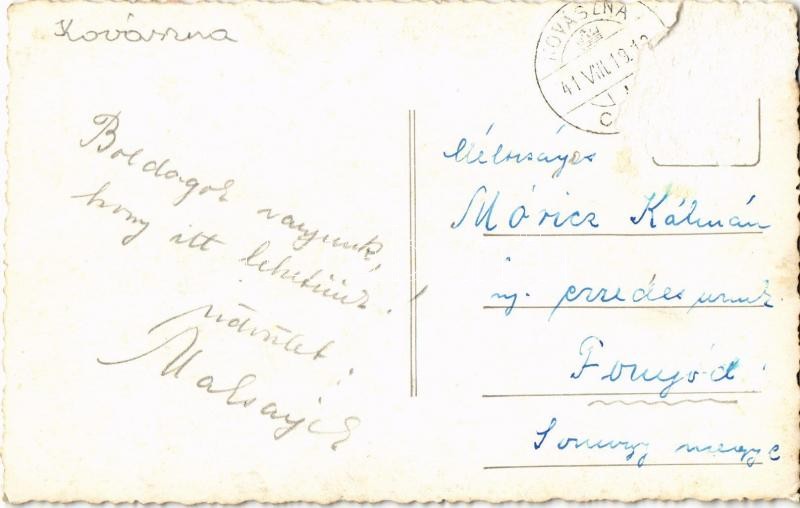 Kovászna
KOVÁSZNA
41 VIII.19.12
Boldogok vagyunk,
hogy itt lehetünk.
üdvözlet:
Méltóságos
Móricz Kálmán
ny. ezredes urnak
Fonyód
Somogy megye